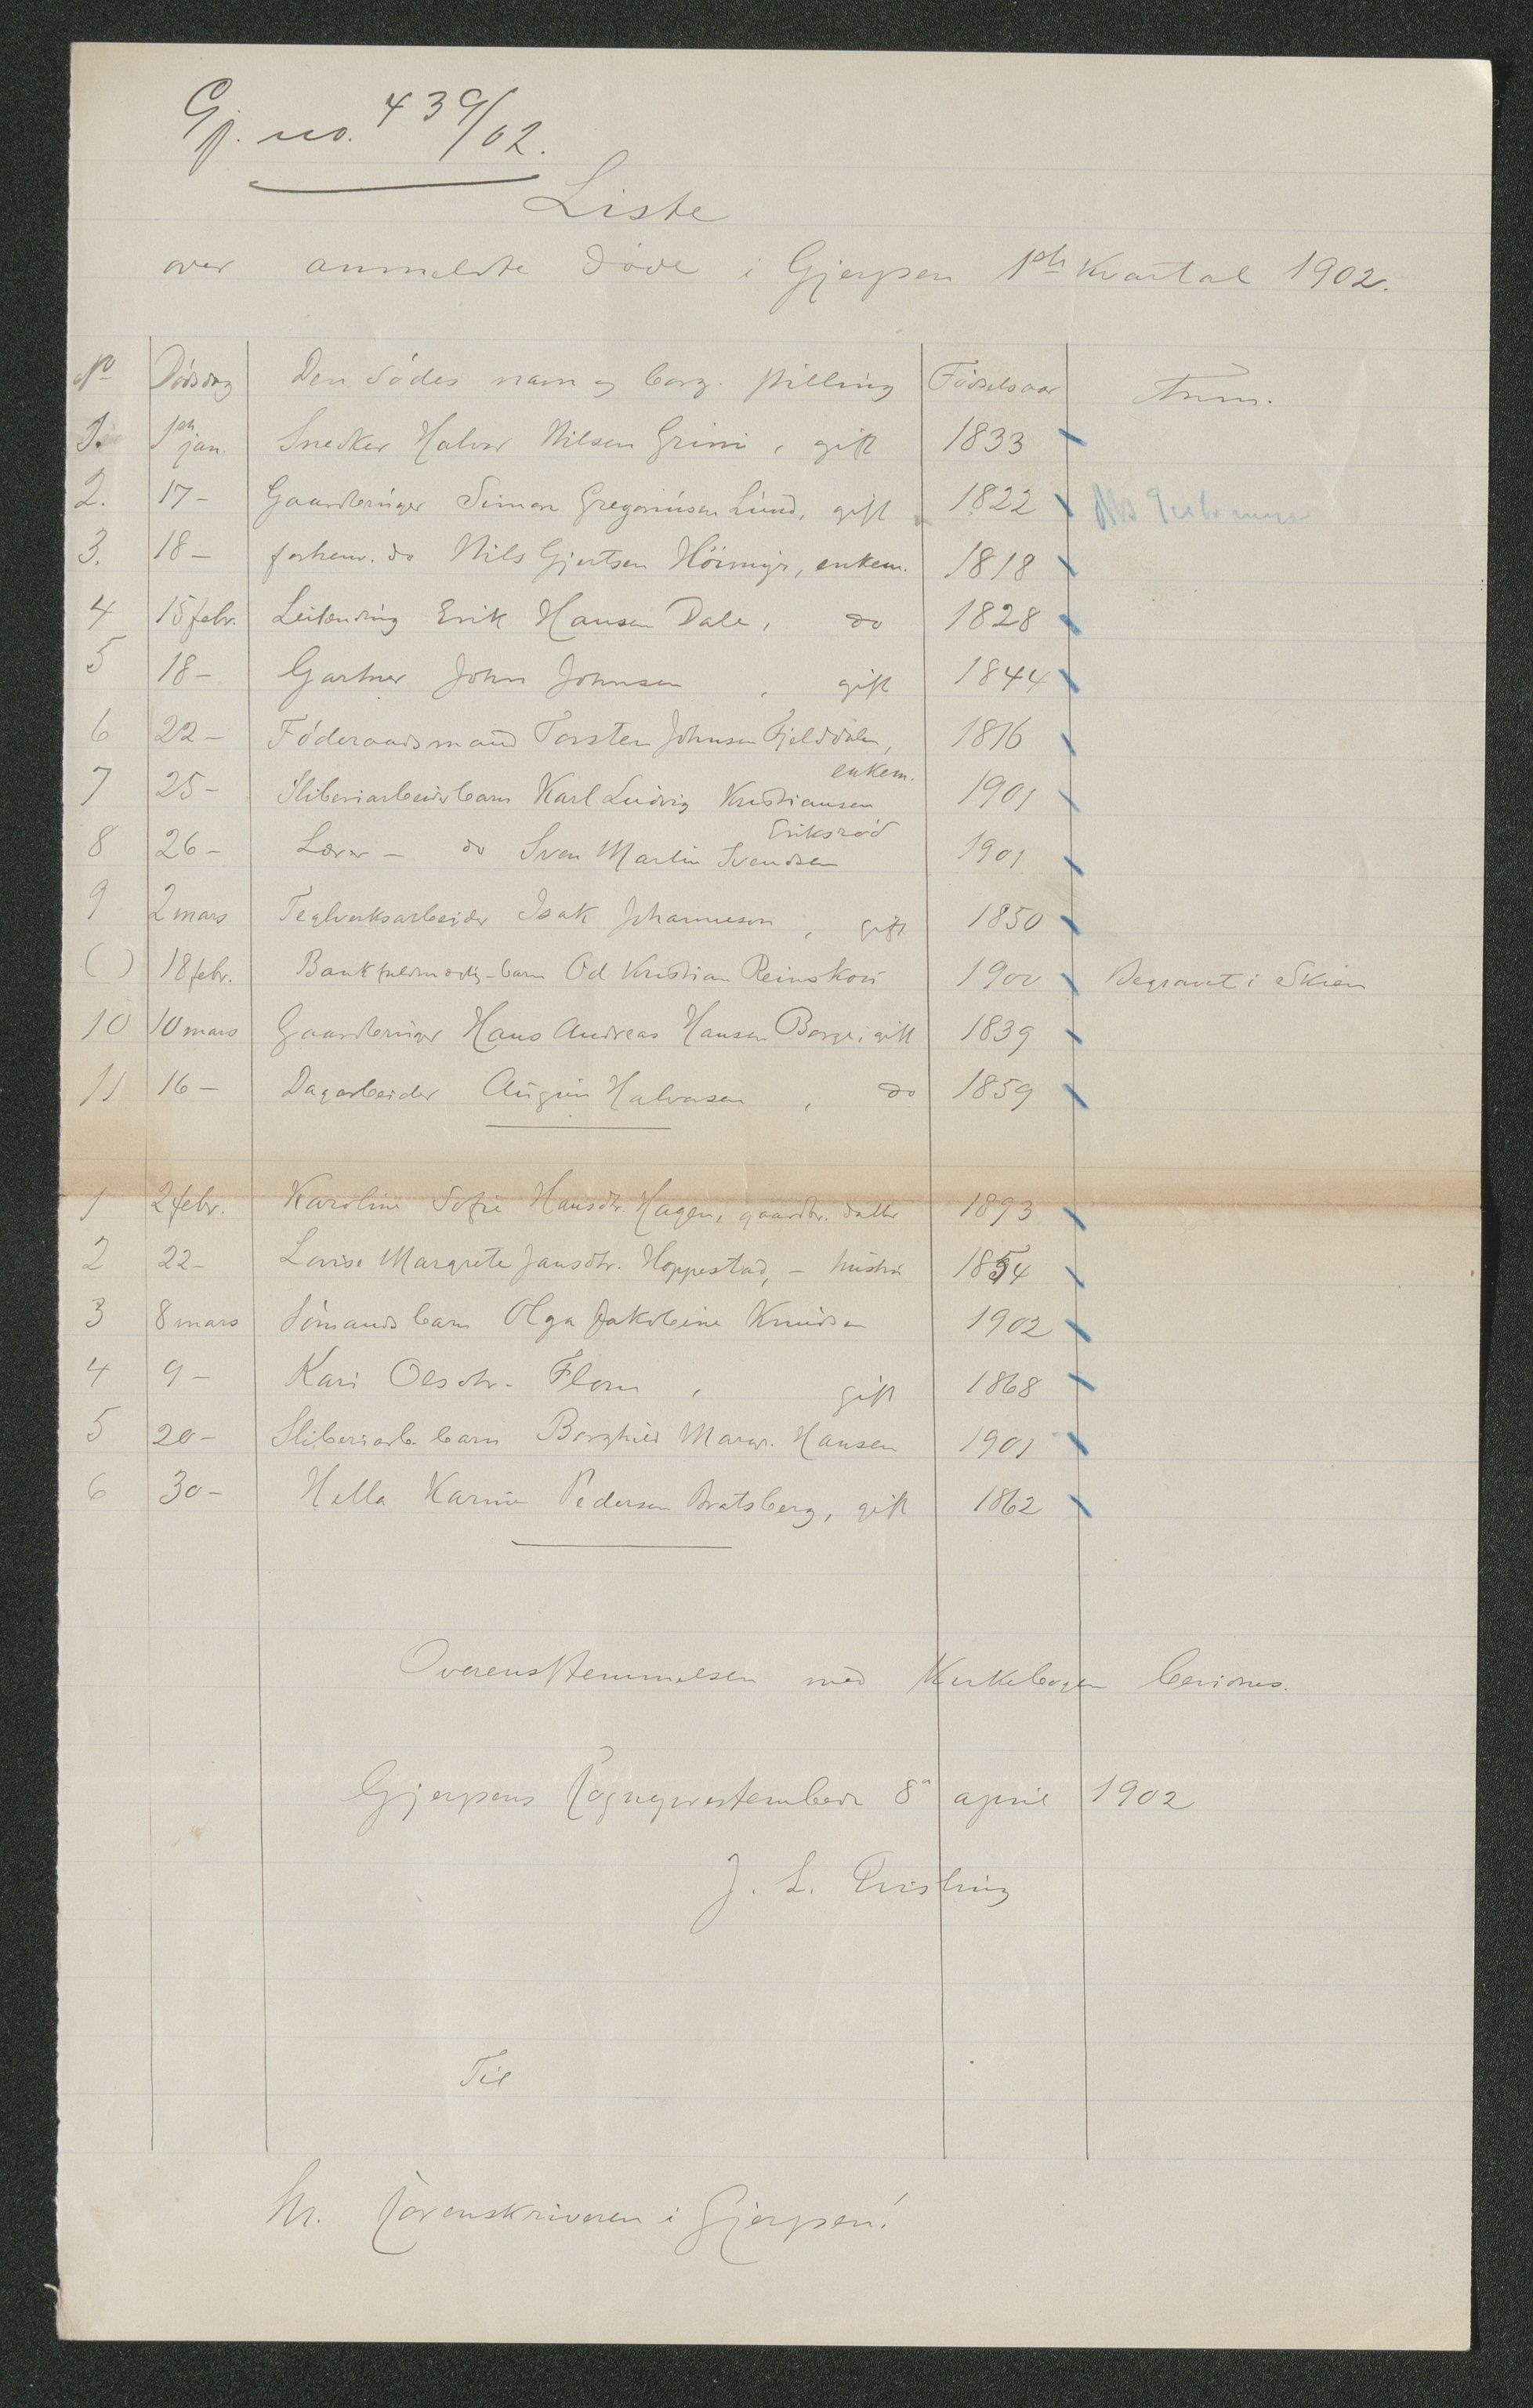 Gj. no. 439/02.
Liste
over anmeldte døde i Gjerpen 1ste Kvartal 1902.
No Dødsdag Den dødes navn og borg. stilling Fødselsaar Anm.
1. 1ste jan. Snedker Halvor Nilsen Grini, gift 1833
2. 17- Gaardbruger Simon Gregoriusen Lund, gift 1822
3. 18- forhenv. do Nils Gjertsen Høimyr, enkem. 1818
4 15 febr. Leilending Erik Hansen Dale, do 1828
5 18- Gartner John Johnsen, gift 1844
6 22- Føderaadsmand Torsten Johnsen Fjelddalen, 1816
enkem.
7 25- Sliberiarbeiderbarn Karl Ludvig Kristiansen 1901
Eriksrød
8 26- Lærer- do Sven Martin Svendsen 1901
9 2 mars Teglverksarbeider Isak Johannesen, gift 1850
( ) 18 febr. Bankfuldmægtig-barn Od Kristian Reinskou 1900 Begravet i Skien
10 10 mars Gaardbruger Hans Andreas Hansen Borge, gift 1839
11 16- Dagarbeider Augun Halvorsen, do 1859
1 2 febr. Karoline Sofie Hansdtr. Hagen, gaardbr. datter 1893
2 22- Lovise Margrete Jansdtr. Hoppestad, - hustru 1854
3 8 mars Sømandsbarn Olga Jakobine Knudsen 1902
4 9- Kari Olsdtr. Flom, gift 1868
5 20- Sliberiarb. barn Borghild Marg. Hansen 1901
6 30- Hella Karine Pedersen Bratsberg, gift 1862
Overensstemmelsen med Kirkebogen bevidnes.
Gjerpens Sogneprestembede 8de april 1902
J. L. Qvisling
Til
Hr. Sorenskriveren i Gjerpen!